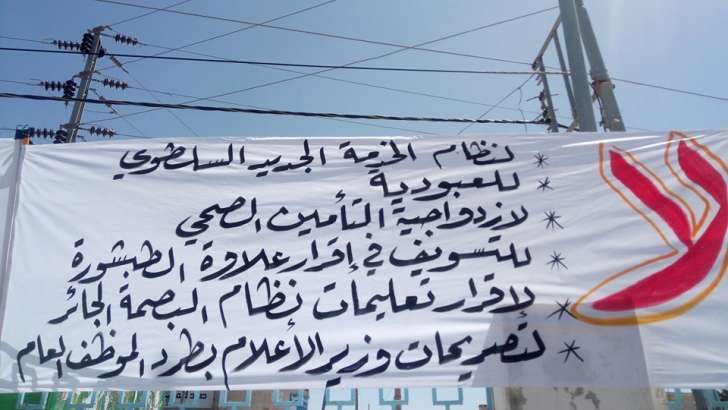 لا
* لنظام الخدمة الجديد السلطوي
* للعبودية
* لازدواجية التأمين الصحي
* للتسويف في إقرار علاوة الطبشورة
* لإقرار تعليمات نظام البصمة الجائر
* لتصريحات وزير الأعلام بطرد الموظف العام